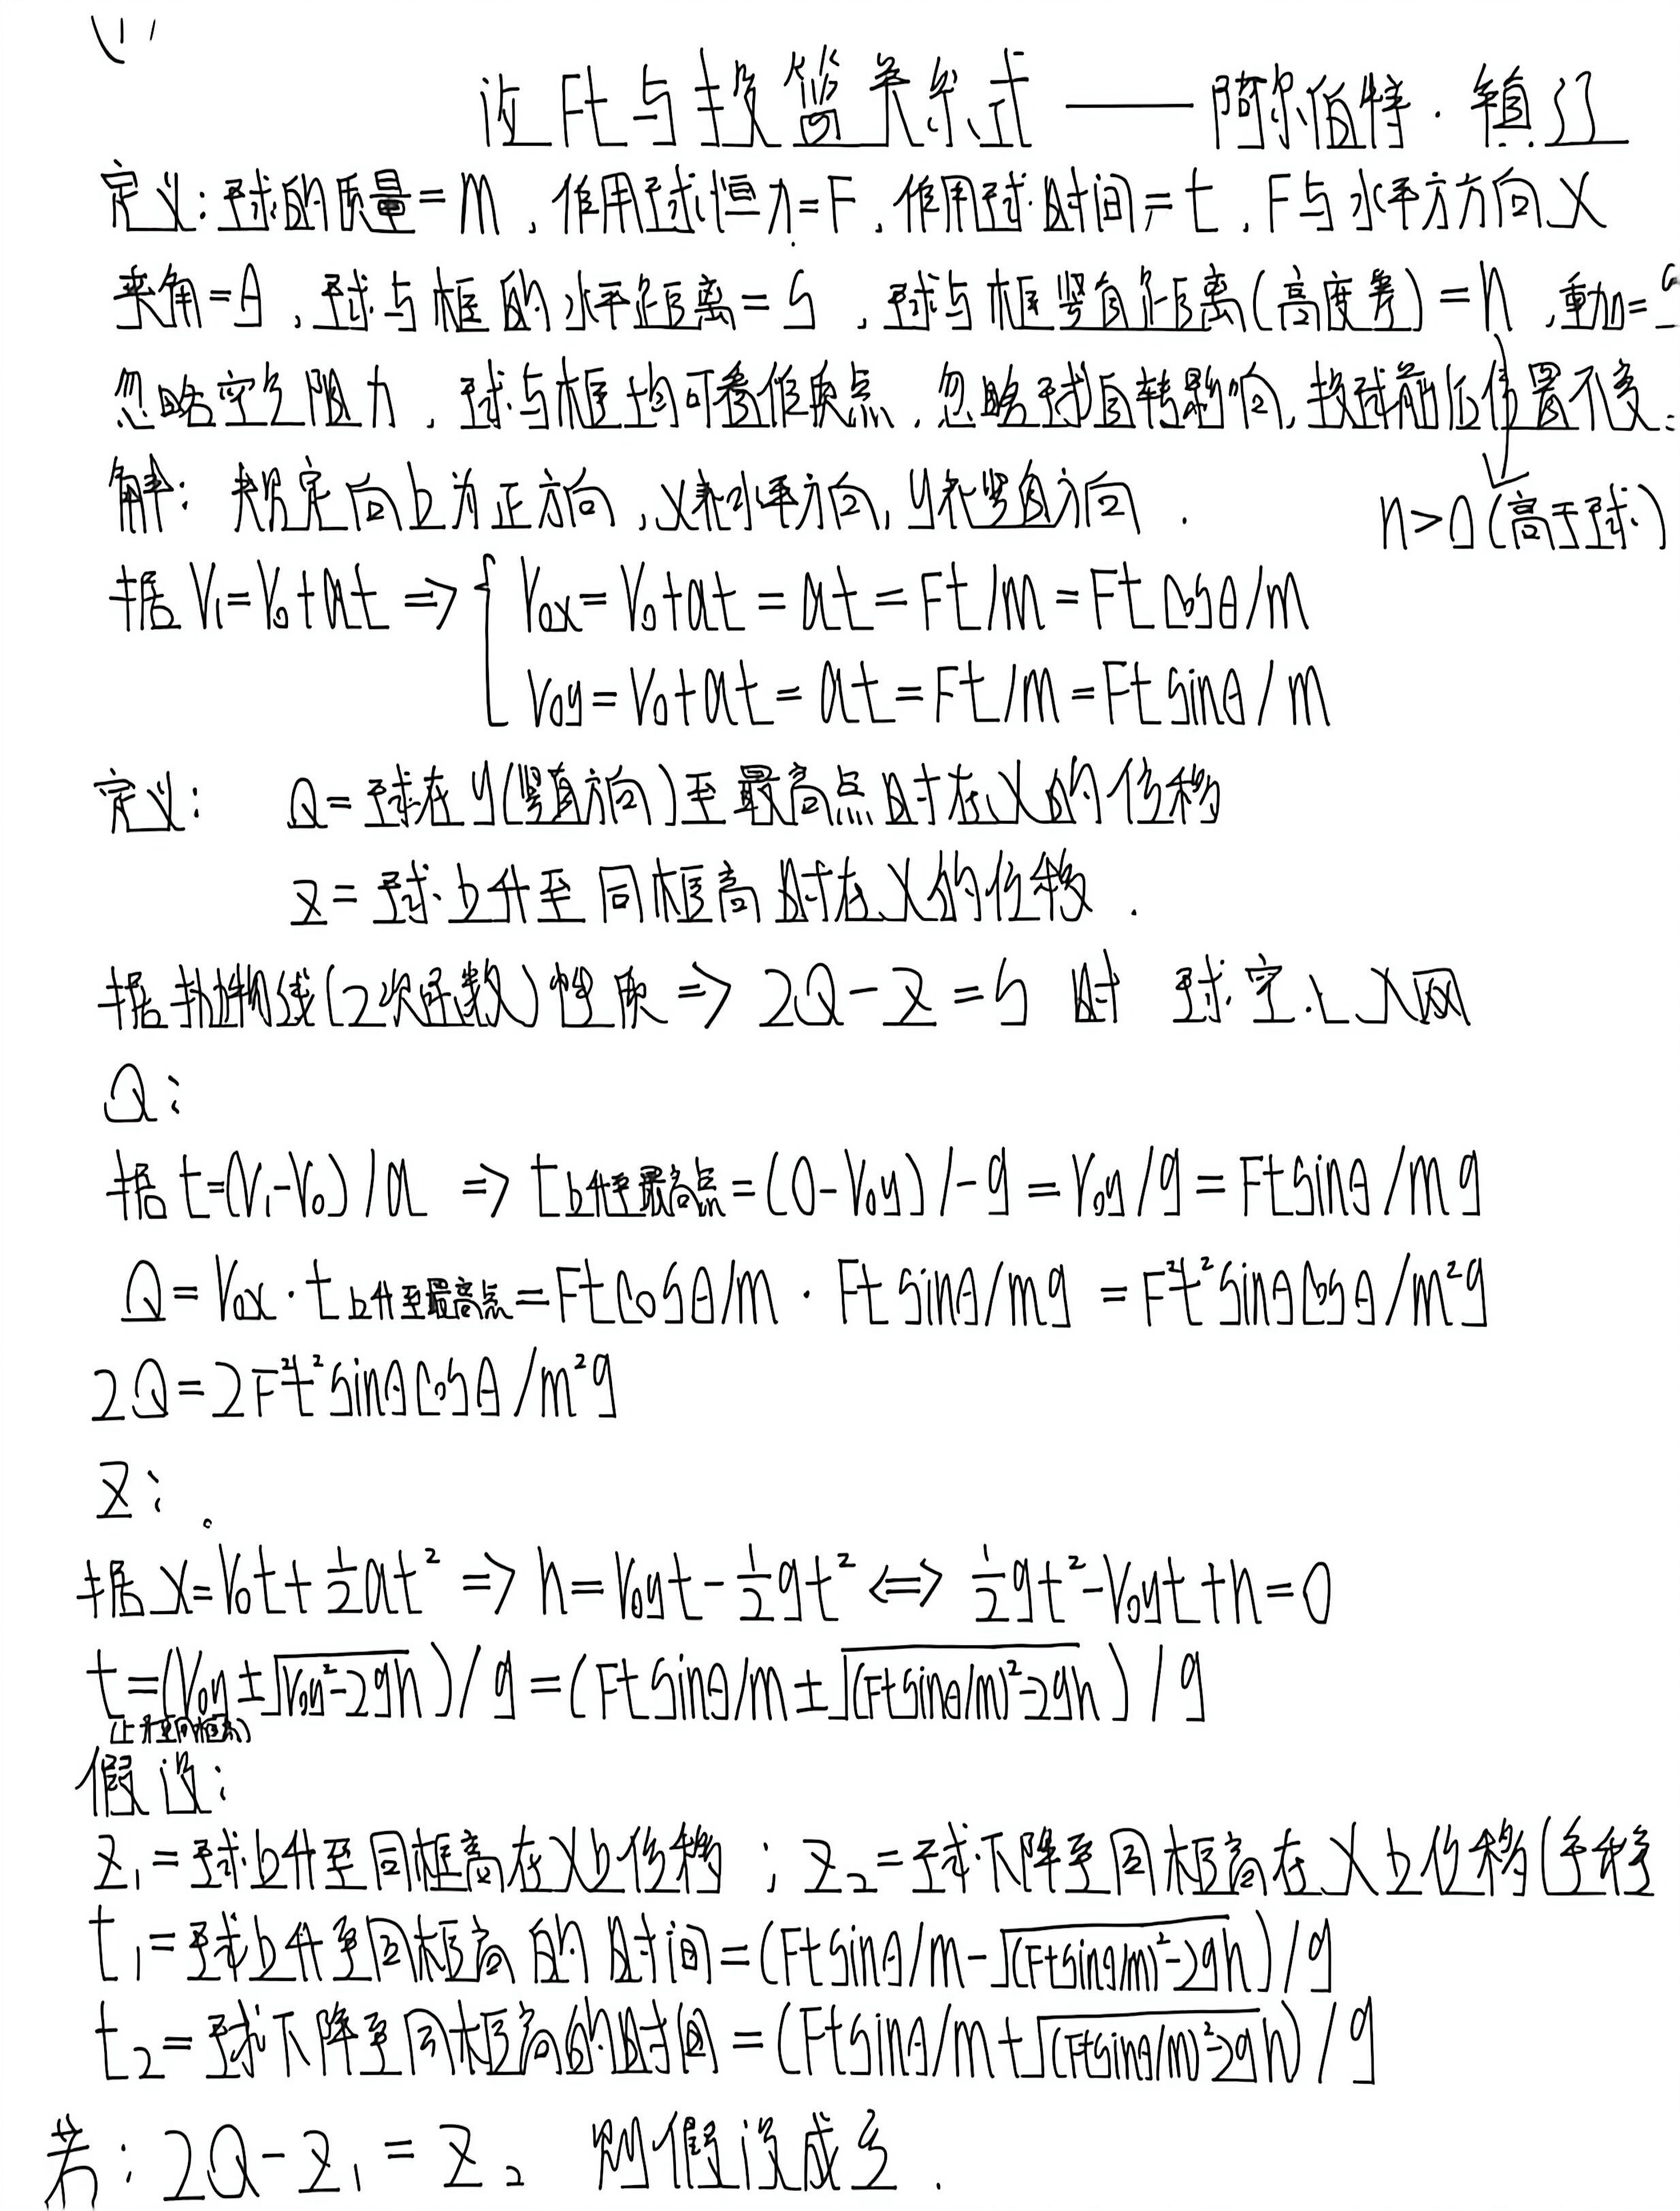 (1)
论Ft与投篮关系式 —— 阿尔伯特·镇江
定义:球的质量=m,作用球恒力=F,作用球时间=t,F与水平方方向X
夹角=θ,球与框的水平距离=S,球与框竖直距离(高度差)=h,重加=
忽略空气阻力,球与框均可看作质点,忽略球自转影响,投球前后位置不变.
解:规定向上为正方向,X表水平方向,y表竖直方向.
h>0(高于球)
据V₁=V₀+at ⇒ { V₀x=V₀+at=at=Ft/m=Ftcosθ/m
V₀y=V₀+at=at=Ft/m=Ftsinθ/m
定义: Q=球在y(竖直方向)至最高点时在X的位移
Z=球上升至同框高时在X的位移.
据抛物线(2次函数)性质 ⇒ 2Q-Z=S 时 球空心入网
Q:
据t=(V₁-V₀)/a ⇒ t上升至最高点=(0-V₀y)/-g=V₀y/g=Ftsinθ/mg
Q=V₀x·t上升至最高点=Ftcosθ/m·Ftsinθ/mg=F²t²sinθcosθ/m²g
2Q=2F²t²sinθcosθ/m²g
Z:
据X=V₀t+½at² ⇒ h=V₀yt-½gt² ⇔ ½gt²-V₀yt+h=0
t=(V₀y±√(V₀y²-2gh))/g=(Ftsinθ/m±√((Ftsinθ/m)²-2gh))/g
(上升至同框高)
假设:
Z₁=球上升至同框高在X上位移;Z₂=球下降至同框高在X上位移(
t₁=球上升至同框高的时间=(Ftsinθ/m-√((Ftsinθ/m)²-2gh))/g
t₂=球下降至同框高的时间=(Ftsinθ/m+√((Ftsinθ/m)²-2gh))/g
若:2Q-Z₁=Z₂ 则假设成立.